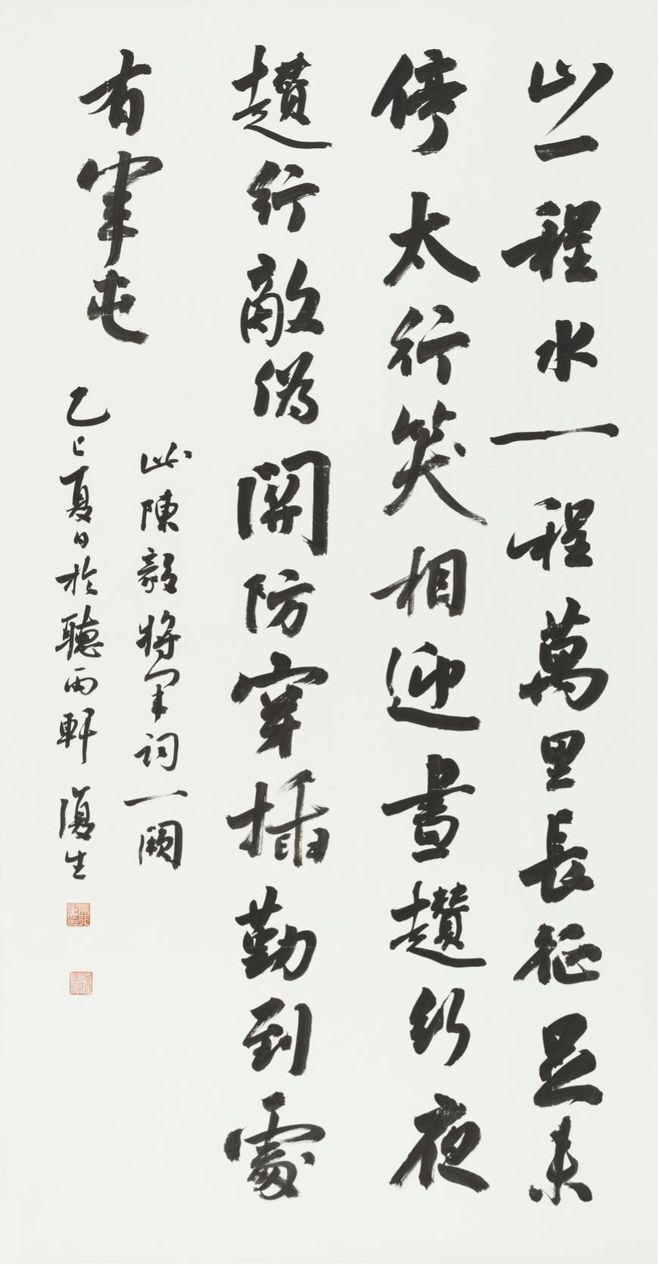 山一程水一程萬里長征足未
停太行笑相迎晝趲行夜
趲行敵偽關防穿插勤到處
有軍屯
此陳毅將軍词一阕
乙巳夏日於聽雨軒 復生